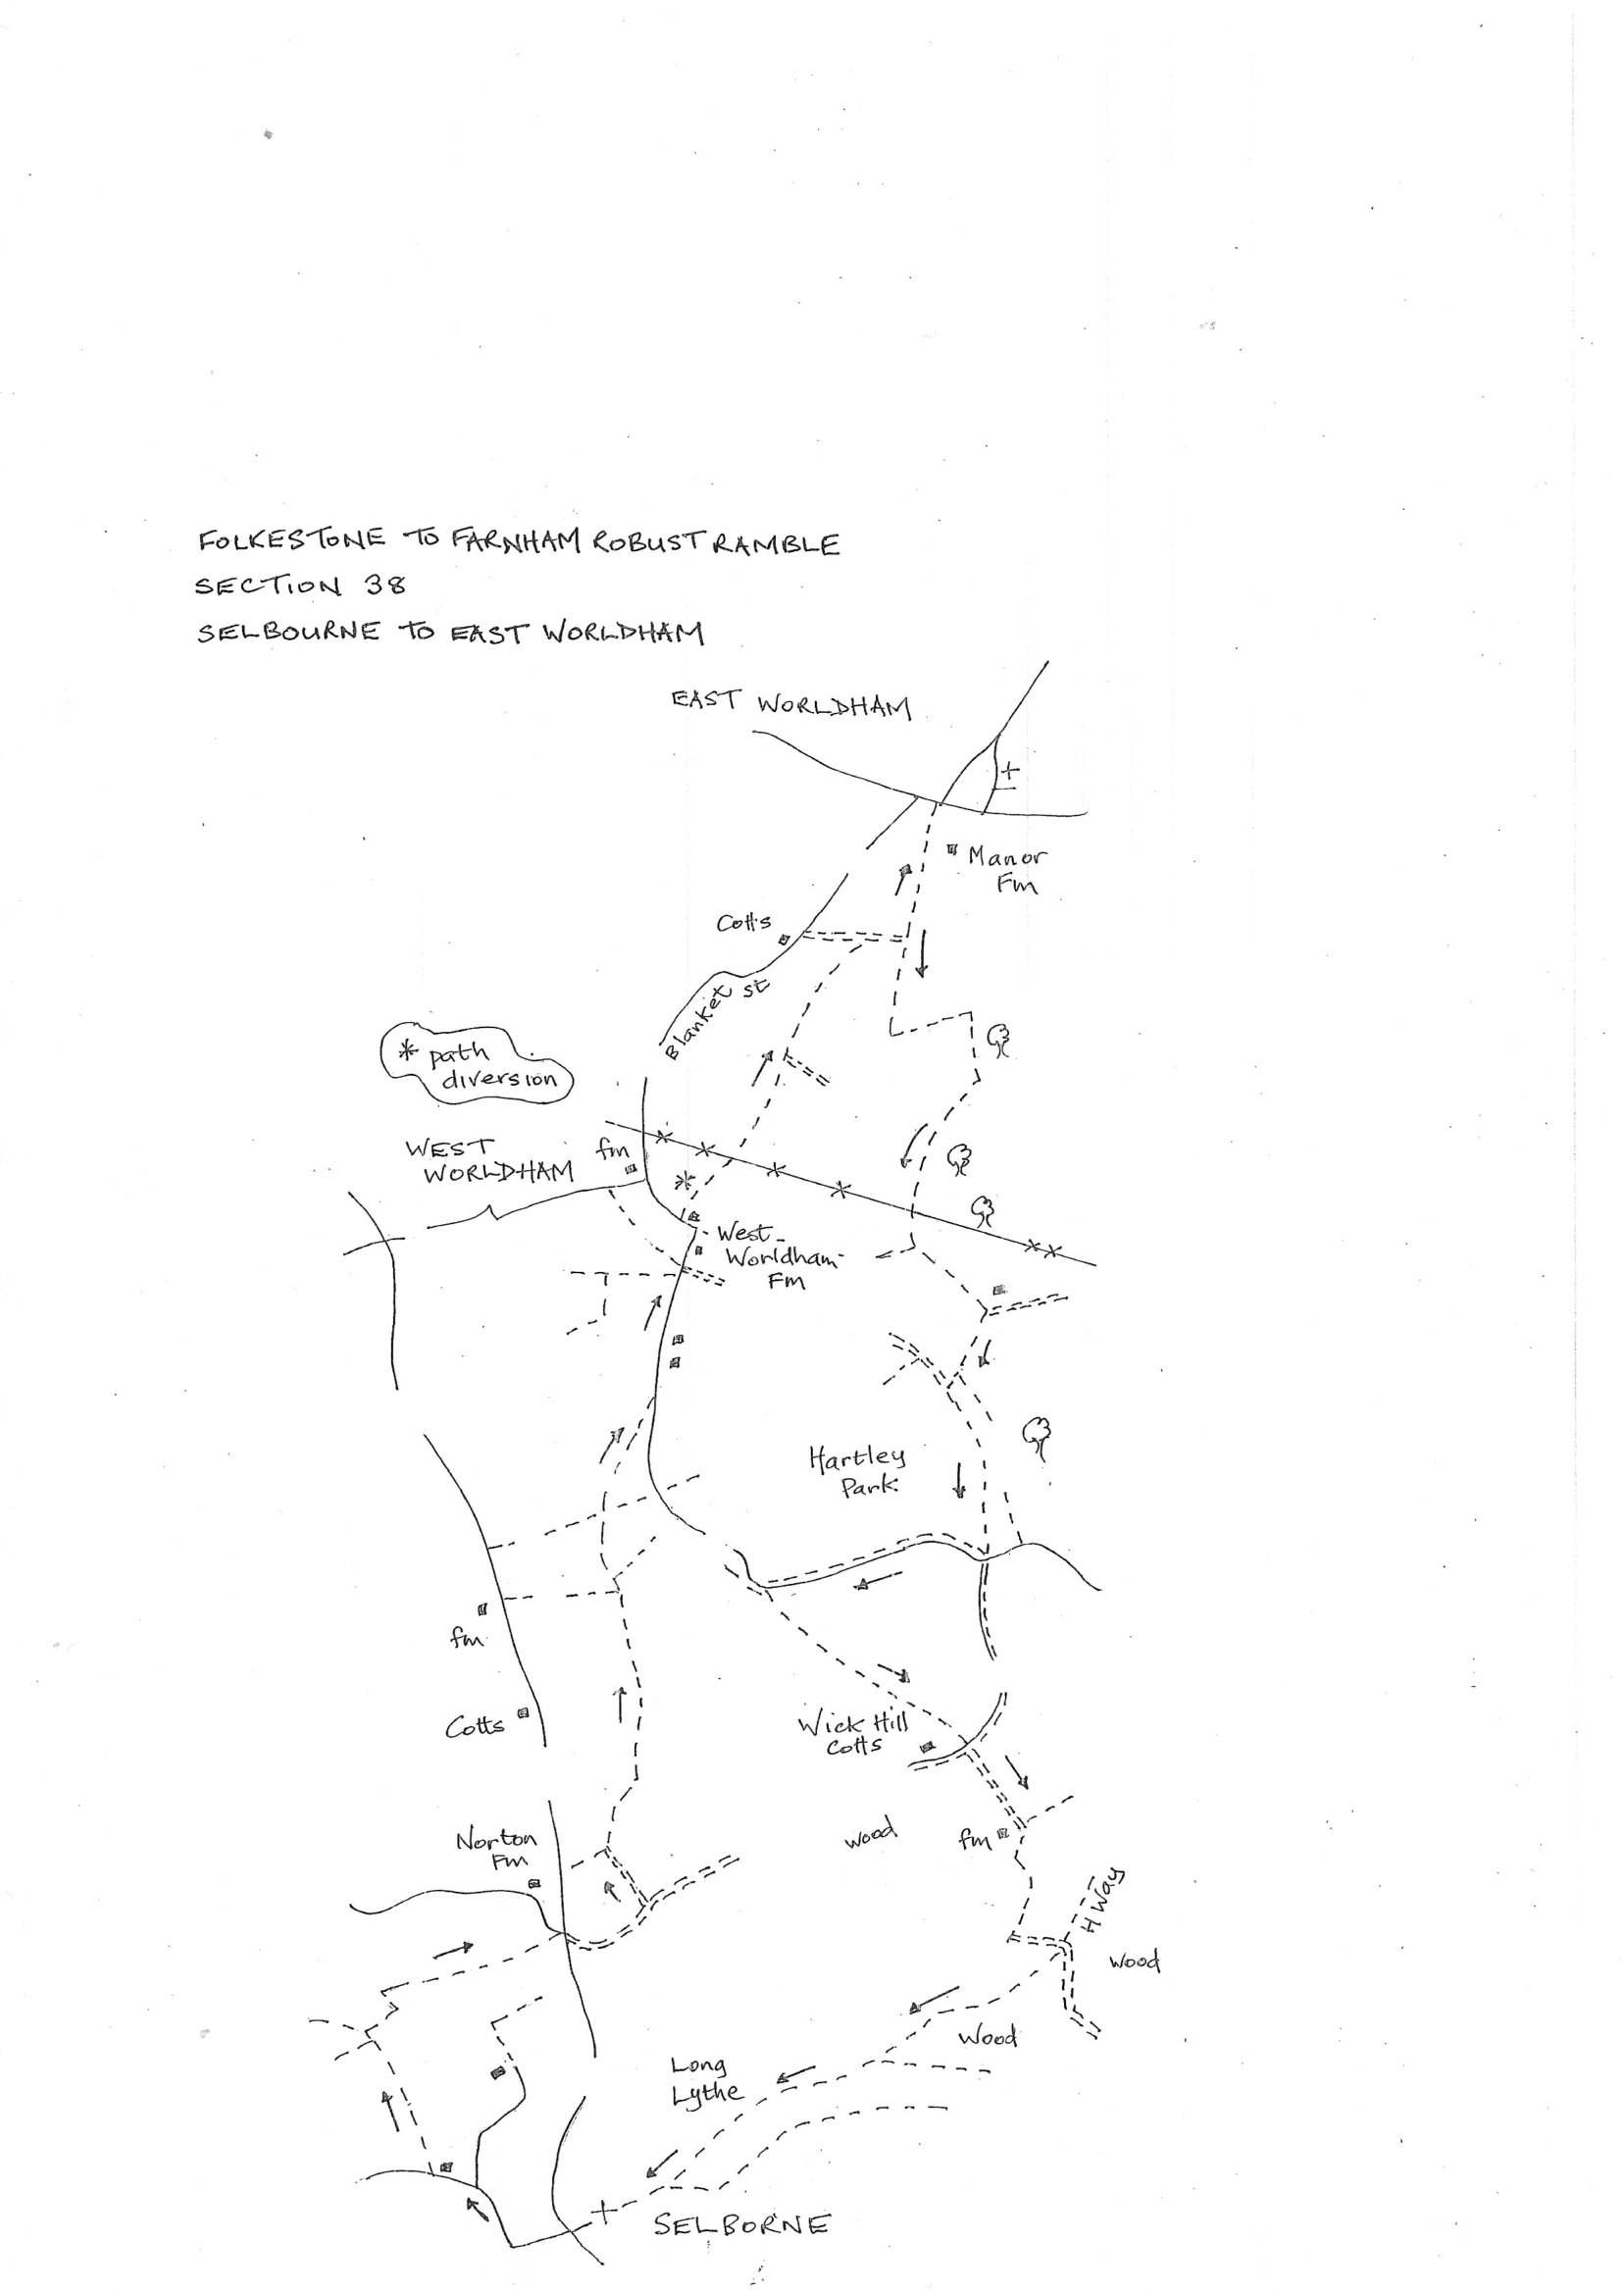 FOLKESTONE TO FARNHAM ROBUST RAMBLE
SECTION 38
SELBOURNE TO EAST WORLDHAM
EAST WORLDHAM
Manor
Fm
Cotts
Blanket St
* path
diversion
WEST
WORLDHAM
fm
*
West
Worldham
Fm
Hartley
Park
fm
Cotts
Wick Hill
Cotts
Norton
Fm
wood
fm
H Way
Wood
Wood
Long
Lythe
SELBORNE